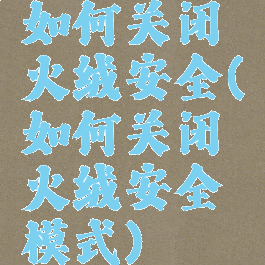 如何关闭
火绒安全(
如何关闭
火绒安全
模式)